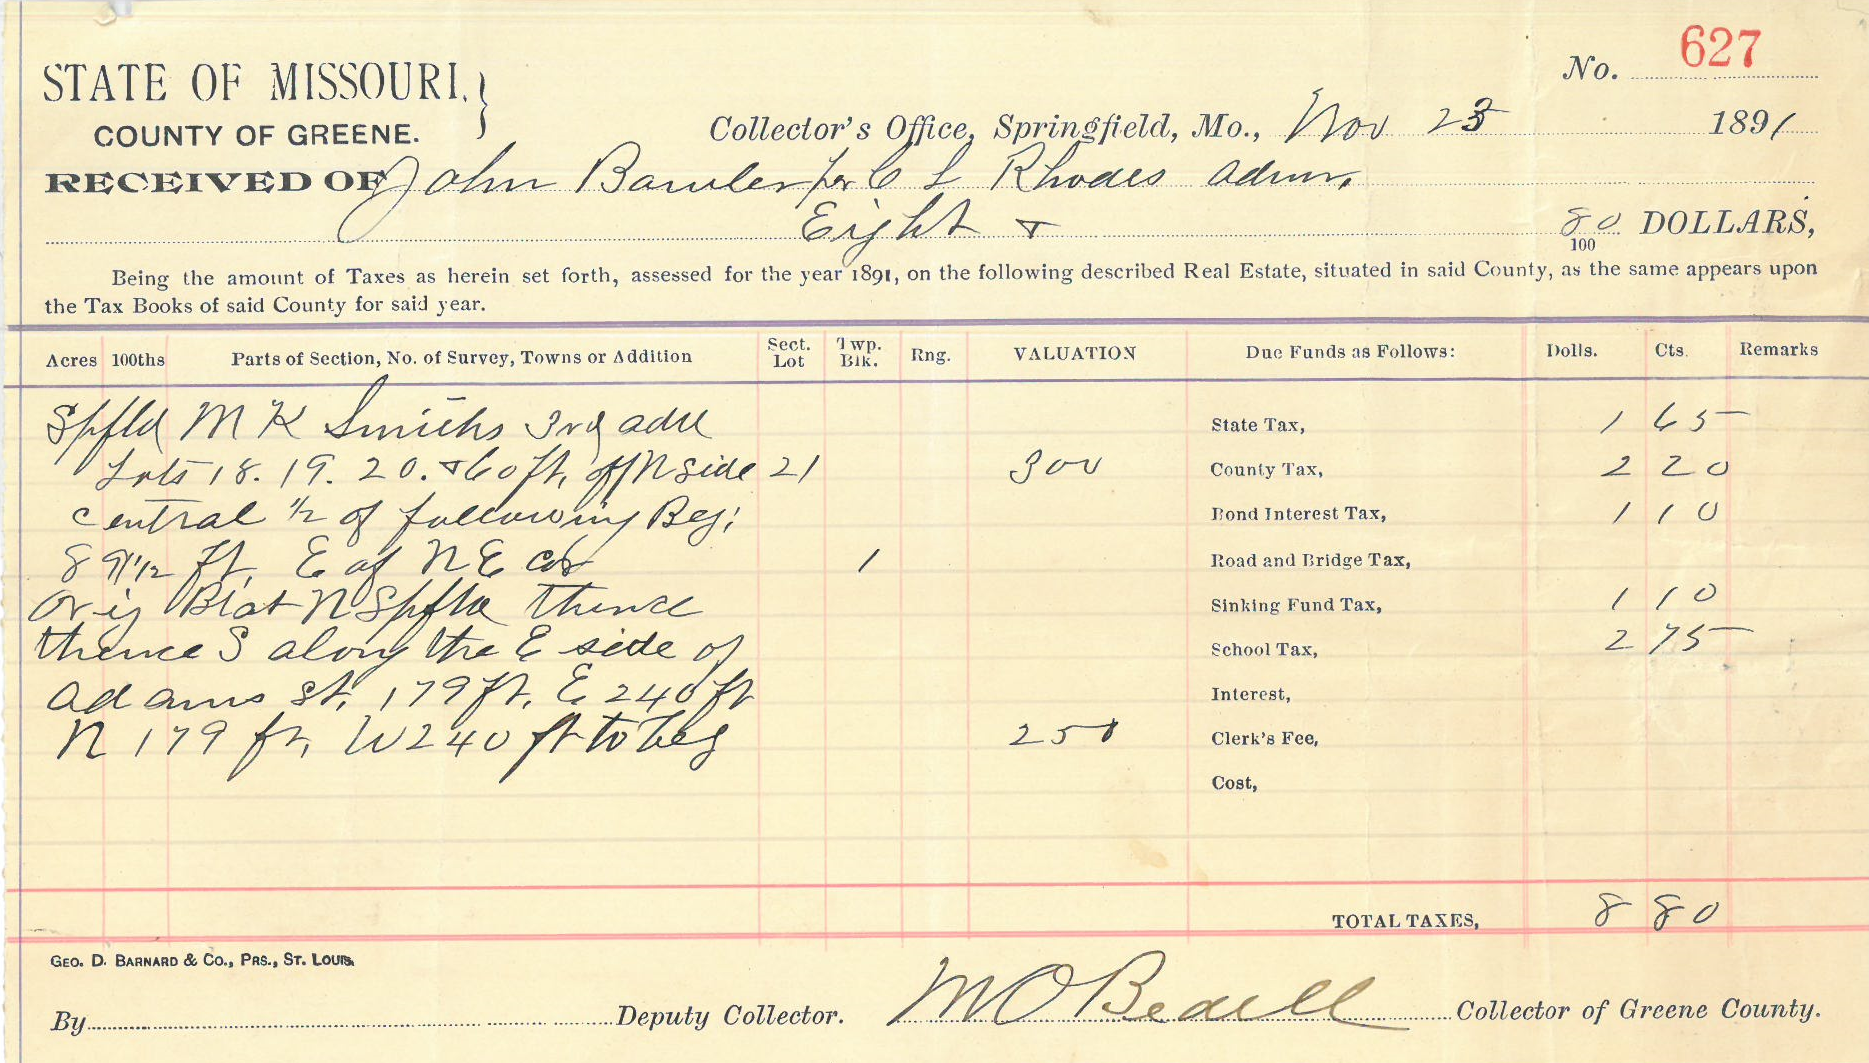 No. 627
STATE OF MISSOURI, }
COUNTY OF GREENE.
Collector's Office, Springfield, Mo., Nov 23 1891
RECEIVED OF John Bawler per C L Rhodes Admr,
Eight & 80/100 DOLLARS,
Being the amount of Taxes as herein set forth, assessed for the year 1891, on the following described Real Estate, situated in said County, as the same appears upon
the Tax Books of said County for said year.
Acres 100ths Parts of Section, No. of Survey, Towns or Addition Sect. Lot Twp. Blk. Rng. VALUATION Due Funds as Follows: Dolls. Cts. Remarks
Spfld M K Smiths 3rd add State Tax, 1 65
Lots 18. 19. 20. & 60 ft, off N side 21 300 County Tax, 2 20
central 1/2 of following Beg; Bond Interest Tax, 1 10
8 9 1/12 ft, E of N E cor 1 Road and Bridge Tax,
Orig Plat N Spfld thence Sinking Fund Tax, 1 10
thence S along the E side of School Tax, 2 75
Adams St, 179 ft, E 240 ft Interest,
N 179 ft, W 240 ft to beg 250 Clerk's Fee,
Cost,
TOTAL TAXES, 8 80
GEO. D. BARNARD & CO., PRS., ST. LOUIS.
By Deputy Collector. M O Bedell Collector of Greene County.